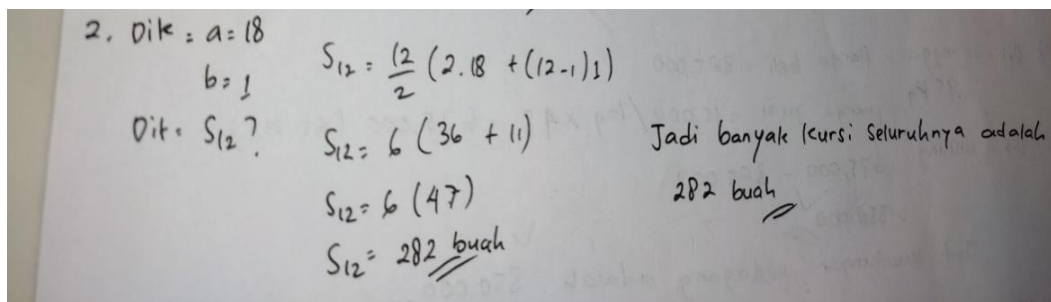 2. Dik : a = 18
b = 1
Dit : S12 ?
S12 = 12/2 (2.18 + (12-1)1)
S12 = 6 (36 + 11)
S12 = 6 (47)
S12 = 282 buah
Jadi banyak kursi seluruhnya adalah
282 buah